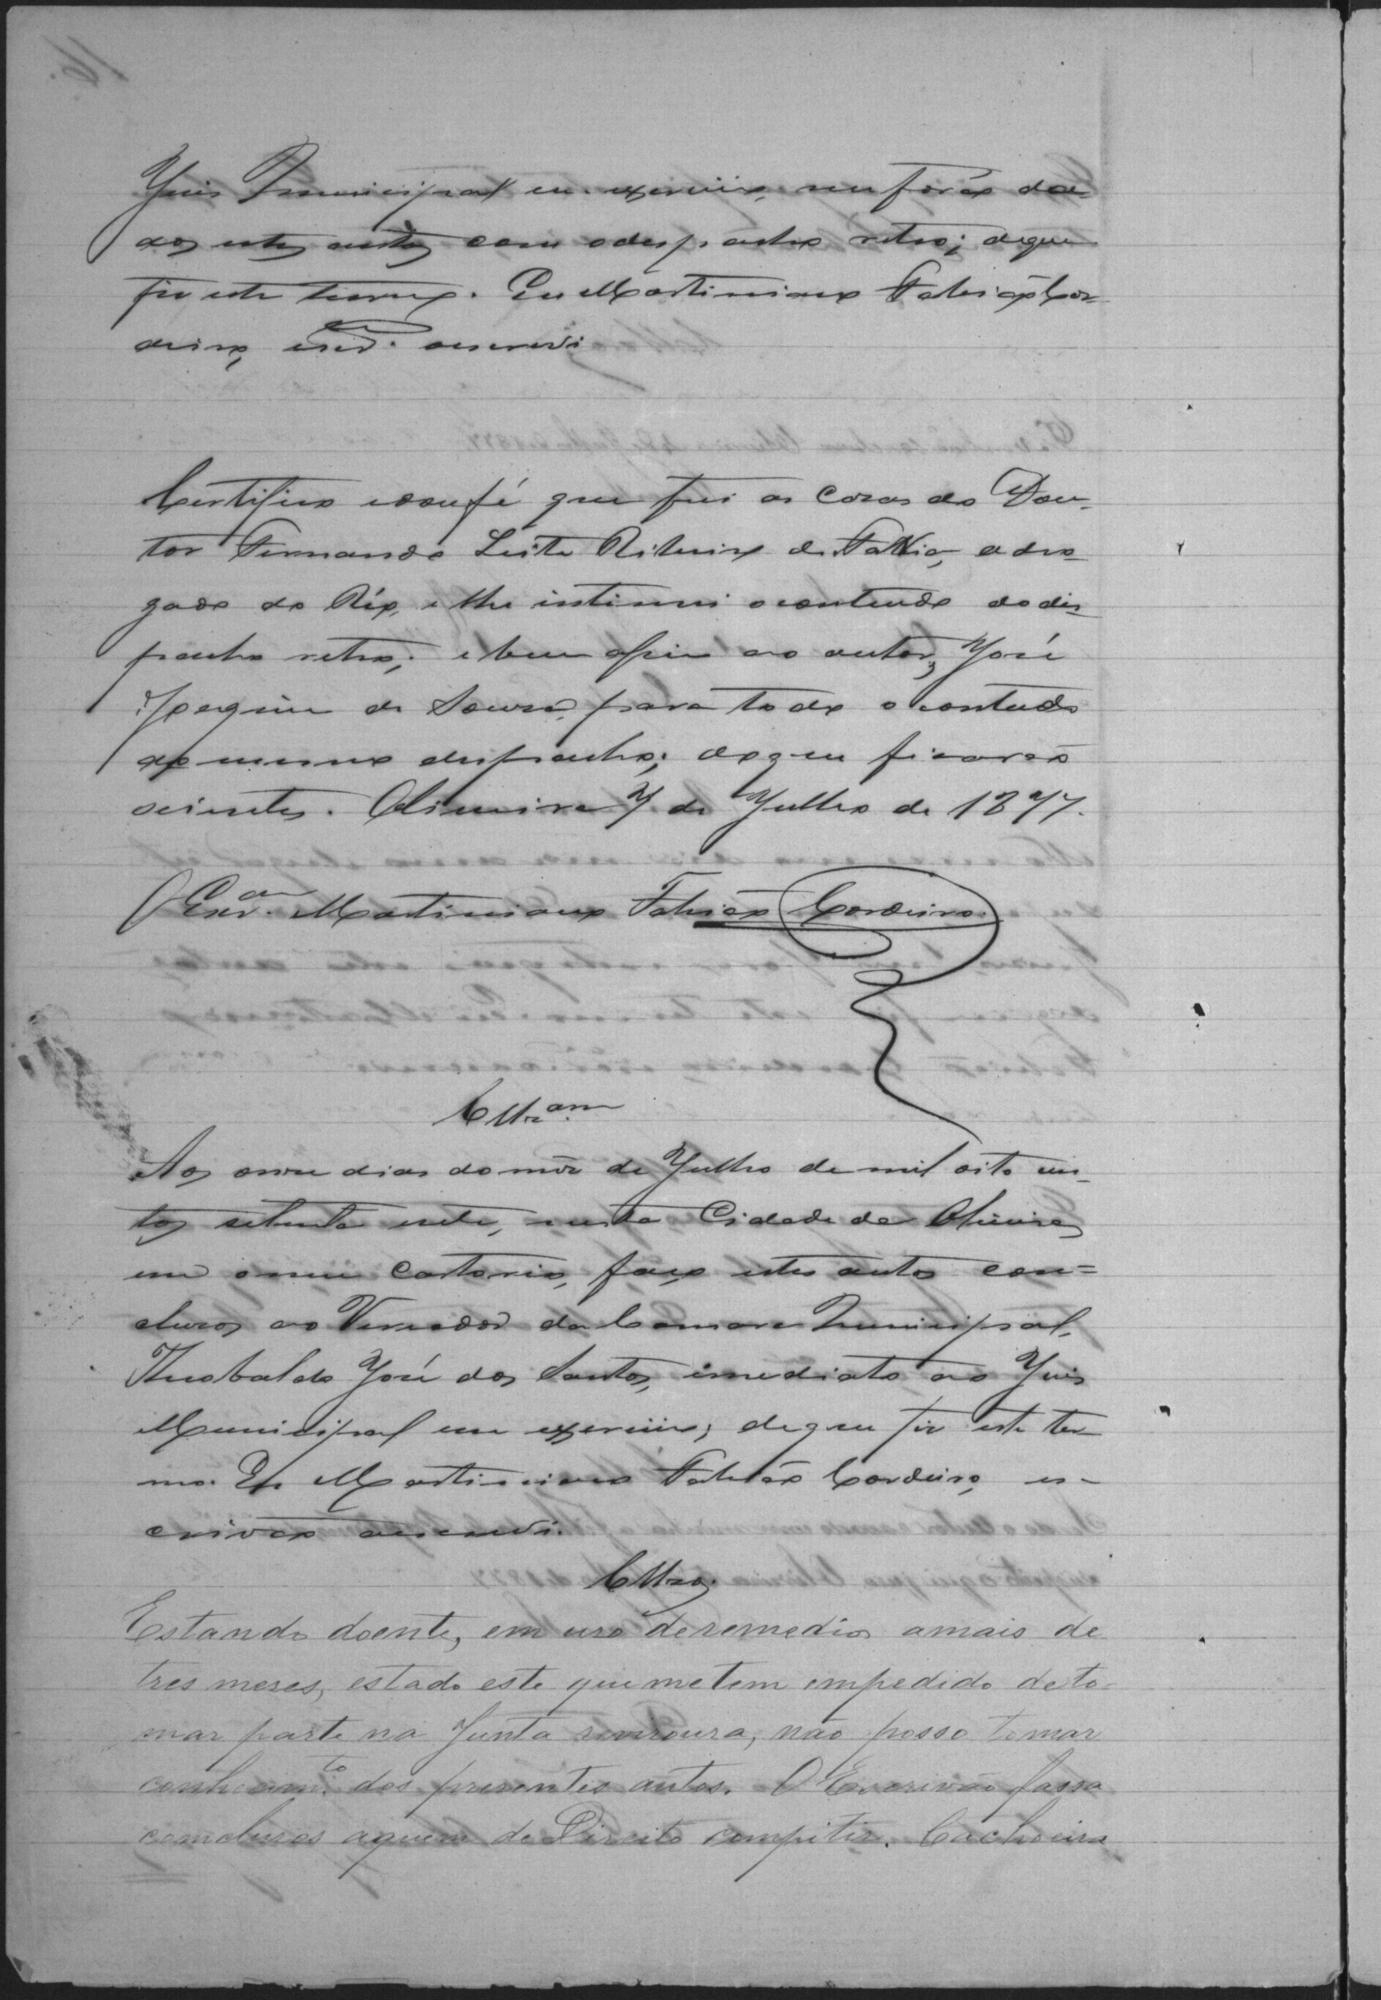 Juis Municipal em exercicio, me forão da-
dos estes autos com o despacho retro; de que
fis este termo. Eu Martiniano Fabião Cor-
deiro, escr.am o escrevi
Certifico e dou fé que fui as casas do Dou-
tor Fernando Leite Ribeiro de Faria, advo-
gado do Réo, e lhe intimei o conteudo do des-
pacho retro; e bem assim ao autor, José
Joaquim de Souza, para todo o conteudo
do mesmo despacho; de que ficarão
scientes. Oliveira 7 de Julho de 1877.
O Escr.am Martiniano Fabião Cordeiro
Cls.am
Aos onse dias do mês de Julho de mil oito cen-
tos setenta e sete, nesta Cidade da Oliveira,
em o meu Cartorio, faço estes autos con-
clusos ao Vereador da Camara Municipal,
Theobaldo José dos Santos, immediato ao Juis
Municipal em exercicio; de que fis este ter-
mo. Eu Martiniano Fabião Cordeiro, es-
crivão o escrevi.
Clsos.
Estando doente, em uso de remedios a mais de
tres meses, estado este que me tem impedido de to-
mar parte na Junta revisora, não posso tomar
conhecim.to dos presentes autos. O Escrivão fassa
comclusos a quem de Direito compitir. Cachoeira